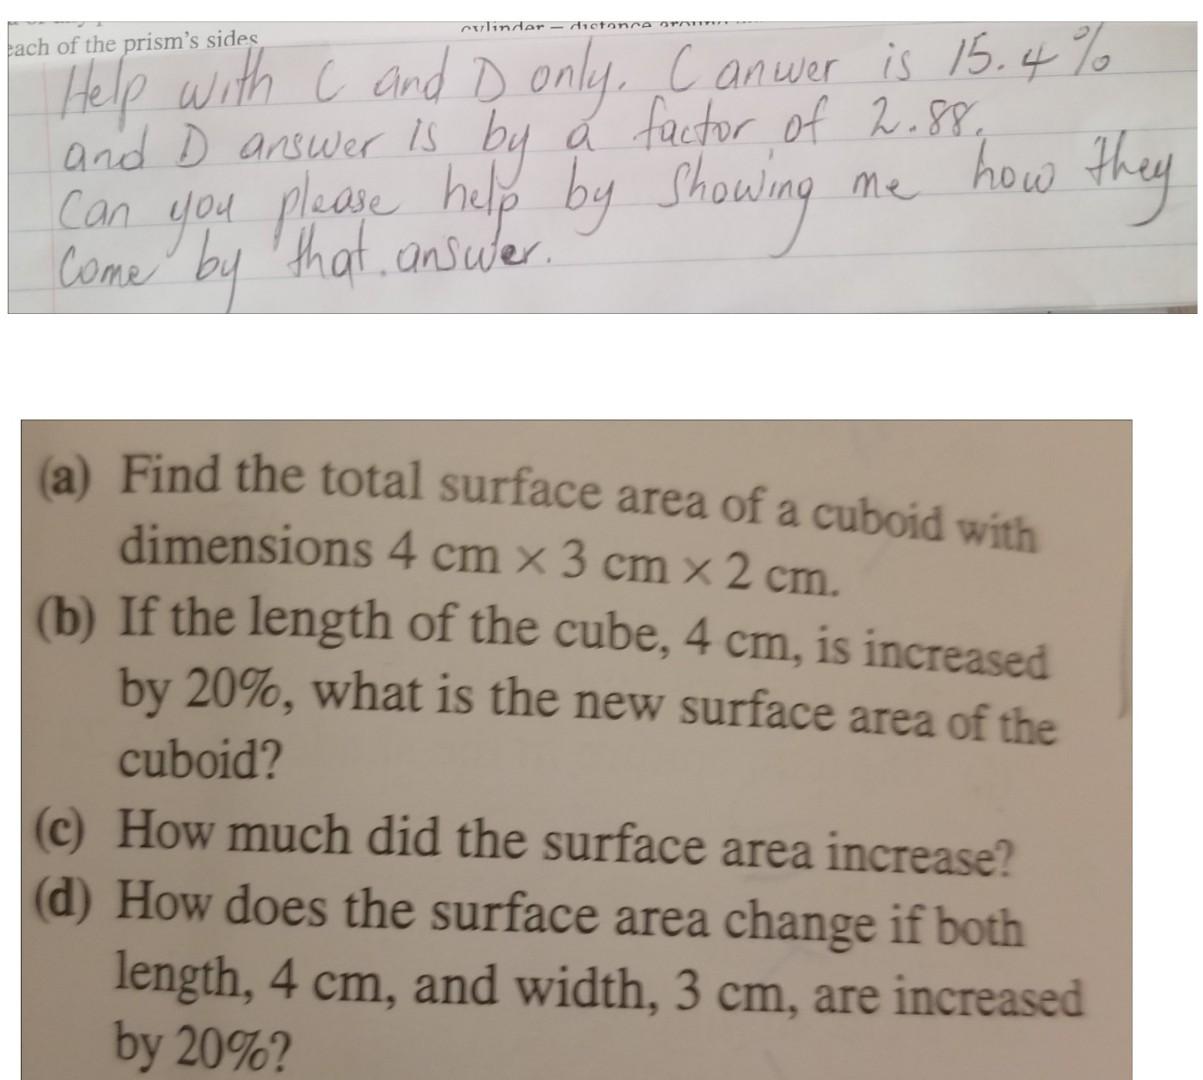 each of the prism's sides
cylinder – distance
Help with C and D only. C anwer is 15.4%
and D answer is by a factor of 2.88.
Can you please help by showing me how they
Come by that answer.
(a) Find the total surface area of a cuboid with
dimensions 4 cm × 3 cm × 2 cm.
(b) If the length of the cube, 4 cm, is increased
by 20%, what is the new surface area of the
cuboid?
(c) How much did the surface area increase?
(d) How does the surface area change if both
length, 4 cm, and width, 3 cm, are increased
by 20%?